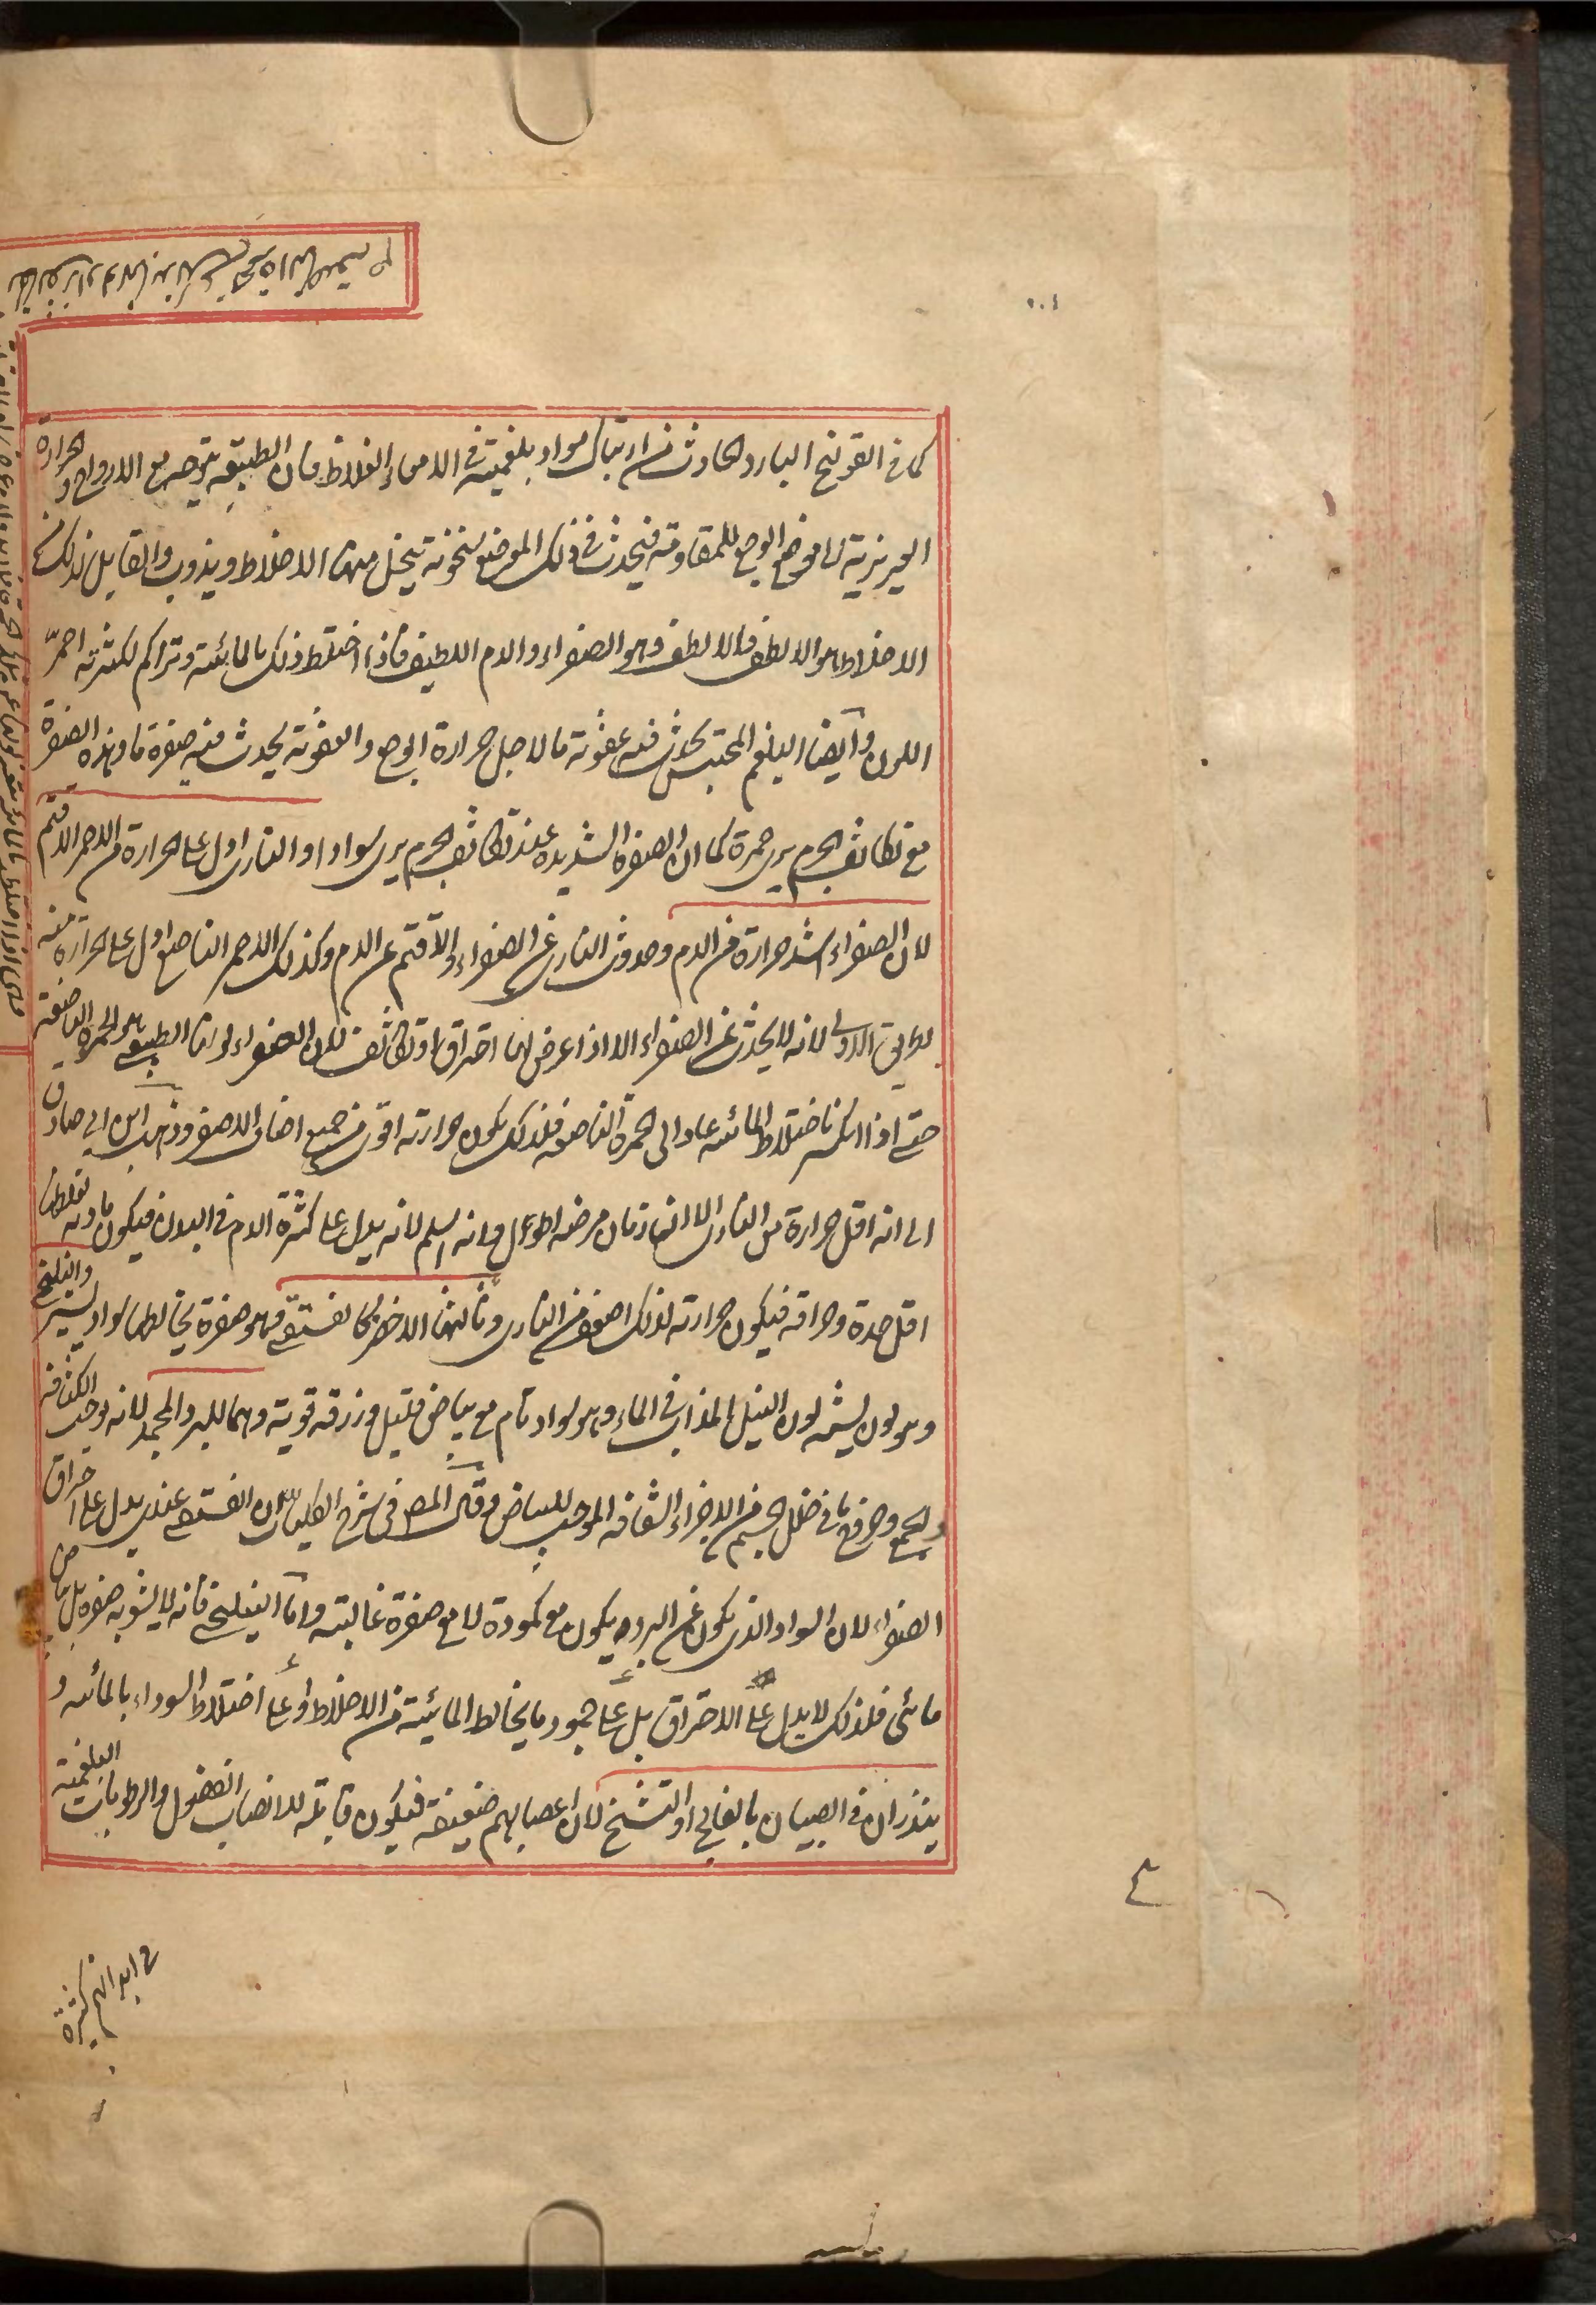 كما فى القولنج البارد الحادث من ارتباك مواد بلغمية فى الامعاء الغلاظ فان الطبيعة يتوجه مع الارواح و الحرارة
الغريزية الى موضع الوجع للمقاومة فيحدث فى ذلك الموضع سخونة يتخلخل منها الاخلاط ويذوب والقابل لذلك من
الاخلاط هو الالطف فالالطف وهو الصفراء والدم اللطيف فاذا اختلط ذلك بالمائية وتراكم لكثرته احمرّ
اللون وايضا البلغم المحتبس يحدث فيه عفونة ما لاجل حرارة الوجع والعفونة يحدث فيه صفرة ما وهذه الصفرة
مع تكاثف الجرم يرى حمرة كما ان الصفرة الشديدة عند تكاثف الجرم يرى سوادا والنارى ادل على الحرارة من الاحمر الاقتم
لان الصفراء اشد حرارة من الدم وحدوث النارى عن الصفراء والاقتم عن الدم وكذلك الاحمر الناصع ادل على الحرارة منه
بطريق الاولى لانه لا يحدث عن الصفراء الا اذا عرض لها احتراق او تكاثف لان الصفراء لونها الطبيعى هو الحمرة الناصعة
حتى اذا انكسر باختلاط المائية عاد الى الحمرة الناصعة فلذلك يكون حرارته اقوى من جميع اصناف الاصفر وذهب ابن ابى صادق
الى انه اقل حرارة من النارى الا ان زمان مرضه اطول وانه اسلم لانه يدل على كثرة الدم فى البدن فيكون مادته لغلظها
اقل حدة وحراقة فيكون حرارته لذلك اضعف من النارى وثالثها الاخضر كالفستقى وهو صفرة يخالطها سواد يسير والنيلنجى
وهو لون يشبه لون النيل المذاب فى الماء وهو سواد تام مع بياض قليل وزرقة قوية وهما للبرد المجمد لانه يوجب الكثافة
والجمع وخروج ما فى خلل الجسم من الاجزاء الشفافة الموجب للبياض وقال المص فى شرح الكليات ان الفستقى عندى يدل على احتراق
الصفراء لان السواد الذى يكون عن البرد يكون مع كمودة لا مع صفرة غالبة واما النيلنجى فانه لا يشوبه صفرة بل بياض
مائى فلذلك لا يدل على الاحتراق بل على جمود ما يخالط المائية من الاخلاط او على اختلاط السوداء بالمائية و
ينذران فى الصبيان بالفالج او التشنج لان اعصابهم ضعيفة فيكون قابلة لانصباب الفضول والرطوبات البلغمية
فى ابدانهم كثيرة